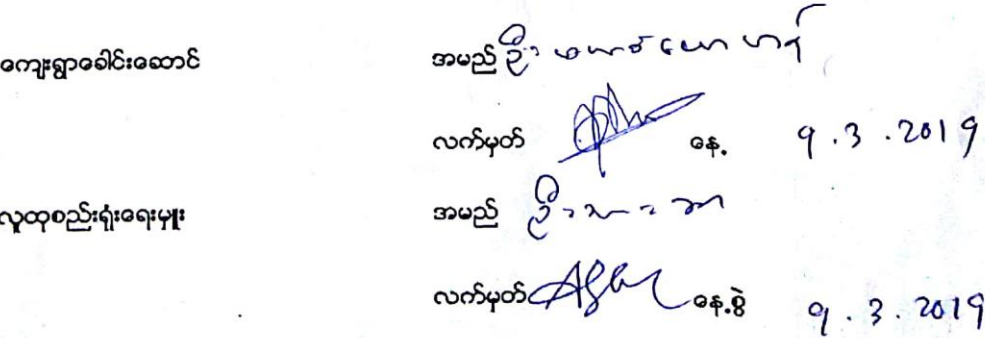 ကျေးရွာခေါင်းဆောင် အမည် ဦး
လက်မှတ် နေ့. 9.3.2019
လူထုစည်းရုံးရေးမှူး အမည် ဦး
လက်မှတ် နေ့.စွဲ 9.3.2019